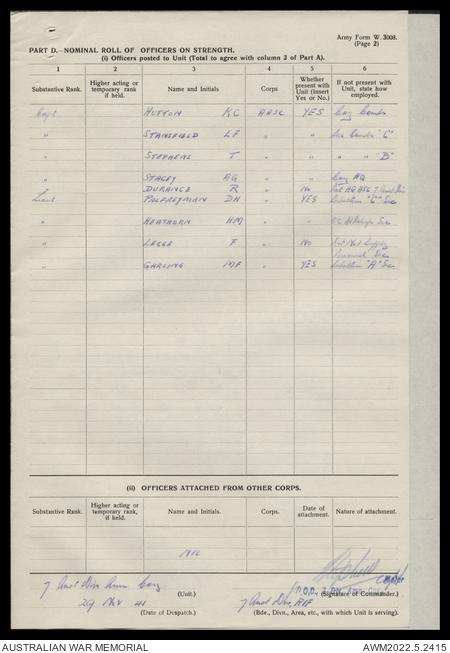 Army Form W. 3008.
(Page 2)
PART D.—NOMINAL ROLL OF OFFICERS ON STRENGTH.
(i) Officers posted to Unit (Total to agree with column 2 of Part A).
1 2 3 4 5 6
Substantive Rank. Higher acting or temporary rank if held. Name and Initials Corps Whether present with Unit (Insert Yes or No.) If not present with Unit, state how employed.
Capt HUTTON KC AASC YES Coy Comdr
" STANSFIELD LF " " Sec Comdr "C"
" STEPHENS T " " " " "B"
" STACEY AG " " Coy HQ
" DURANCE R " No HQ AASC 7 Aust Div
Lieut PALFREYMAN DN " YES "C" Sec
" HEATHORN HM " " Sec
" LEGGE F " No Supply
Personnel Sec
" GARLING MF " YES "A" Sec
(ii) OFFICERS ATTACHED FROM OTHER CORPS.
Substantive Rank. Higher acting or temporary rank, if held. Name and Initials. Corps. Date of attachment. Nature of attachment.
NIL
7 Aust Div Amn Coy (Unit.)
(Signature of Commander.)
29 Nov 41 (Date of Despatch.)
7 Aust Div, AIF
(Bde., Divn., Area, etc., with which Unit is serving).
AUSTRALIAN WAR MEMORIAL
AWM2022.5.2415